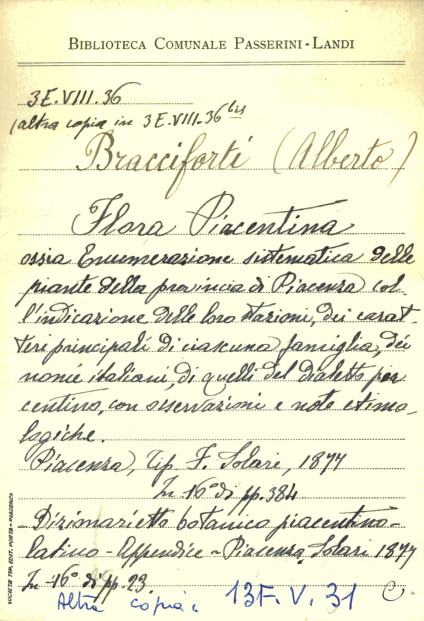 BIBLIOTECA COMUNALE PASSERINI-LANDI
3E.VIII.36
(altra copia in 3E.VIII.36 bis
Bracciforti (Alberto)
Flora Piacentina
ossia Enumerazione sistematica delle
piante della provincia di Piacenza col-
l'indicazione delle loro stazioni, dei carat-
teri principali di ciascuna famiglia, dei
nomi italiani, di quelli del dialetto pia
centino, con osservazioni e note etimo-
logiche.
Piacenza, Tip. F. Solari, 1877
In-16° di pp. 384
- Dizionarietto botanico piacentino-
latino - Appendice - Piacenza, Solari 1877
In-16° di pp. 23
Altra copia: 13F.V.31
C
SOCIETÀ TIP. EDIT. PORTA - PIACENZA